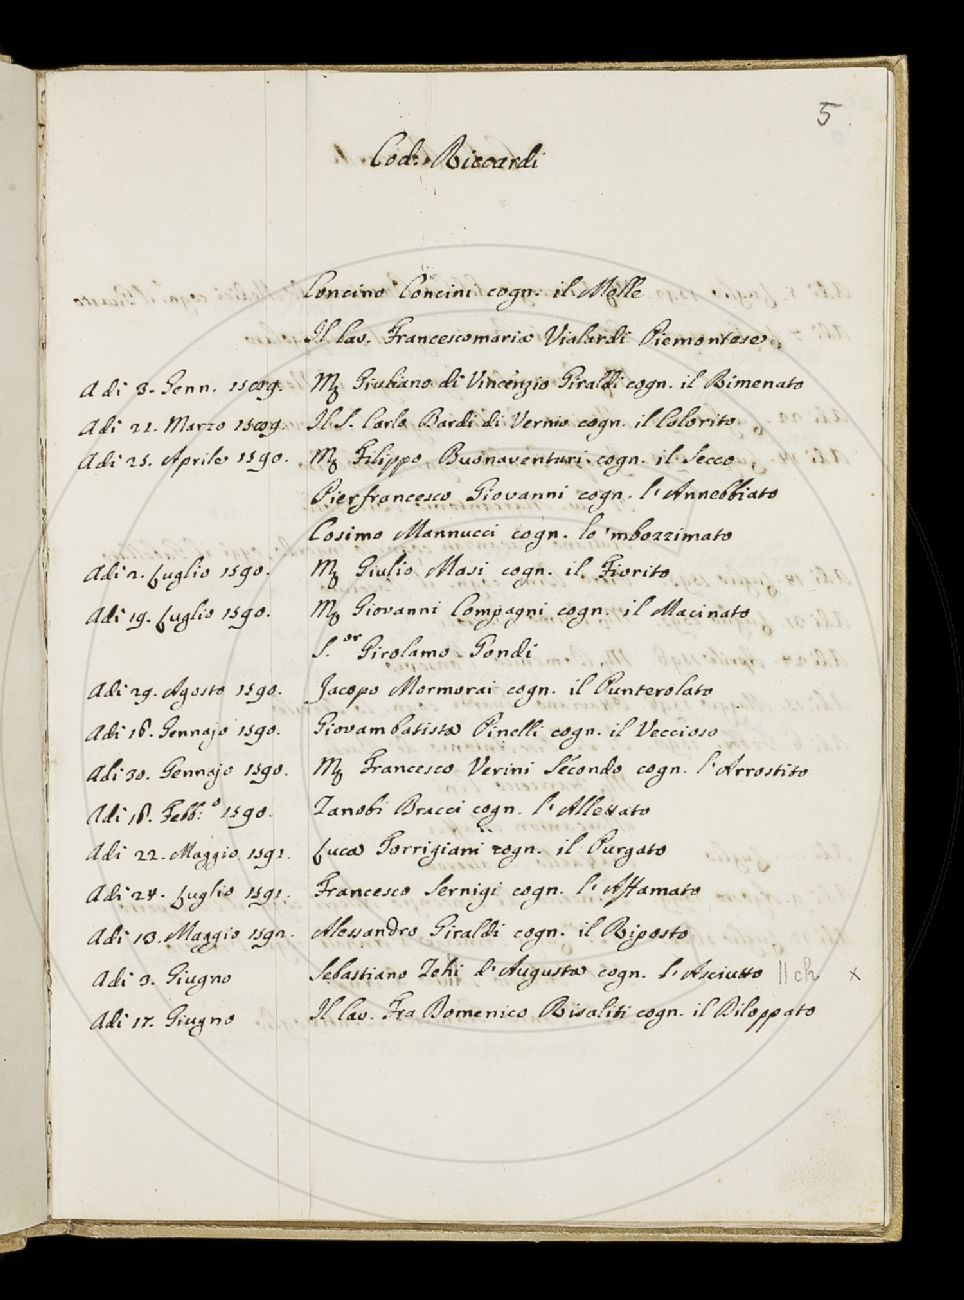 5
Cod. Riccardi
Concino Concini cogn. il Molle
Il Cav. Francescomaria Vialardi Piemontese
Adi 3. Genn. 1589. Mʳ Giuliano di Vincenzio Giraldi cogn. il Rimenato
Adi 21. Marzo 1589. Il S. Carlo Bardi di Vernio cogn. il Colorito
Adi 25. Aprile 1590. Mʳ Filippo Buonaventuri cogn. il Secco
Pierfrancesco Giovanni cogn. l'Annebbiato
Cosimo Mannucci cogn. lo 'mbozzimato
Adi 2. Luglio 1590. Mʳ Giulio Masi cogn. il Fiorito
Adi 19. Luglio 1590. Mʳ Giovanni Compagni cogn. il Macinato
S.ᵒʳ Girolamo Gondi
Adi 29. Agosto 1590. Jacopo Mormorai cogn. il Punterolato
Adi 18. Gennajo 1590. Giovambatista Pinelli cogn. il Veccioso
Adi 30. Gennajo 1590. Mʳ Francesco Verini Secondo cogn. l'Arrostito
Adi 18. Febb.º 1590. Zanobi Bracci cogn. l'Allessato
Adi 22. Maggio 1591. Luca Torrigiani cogn. il Purgato
Adi 24. Luglio 1591. Francesco Sernigi cogn. l'Affamato
Adi 13. Maggio 1592. Alessandro Giraldi cogn. il Riposto
Adi 3. Giugno Sebastiano Zehi d'Augusta cogn. l'Asciutto || ch x
Adi 17. Giugno Il Cav. Fra Domenico Risaliti cogn. il Riloppato